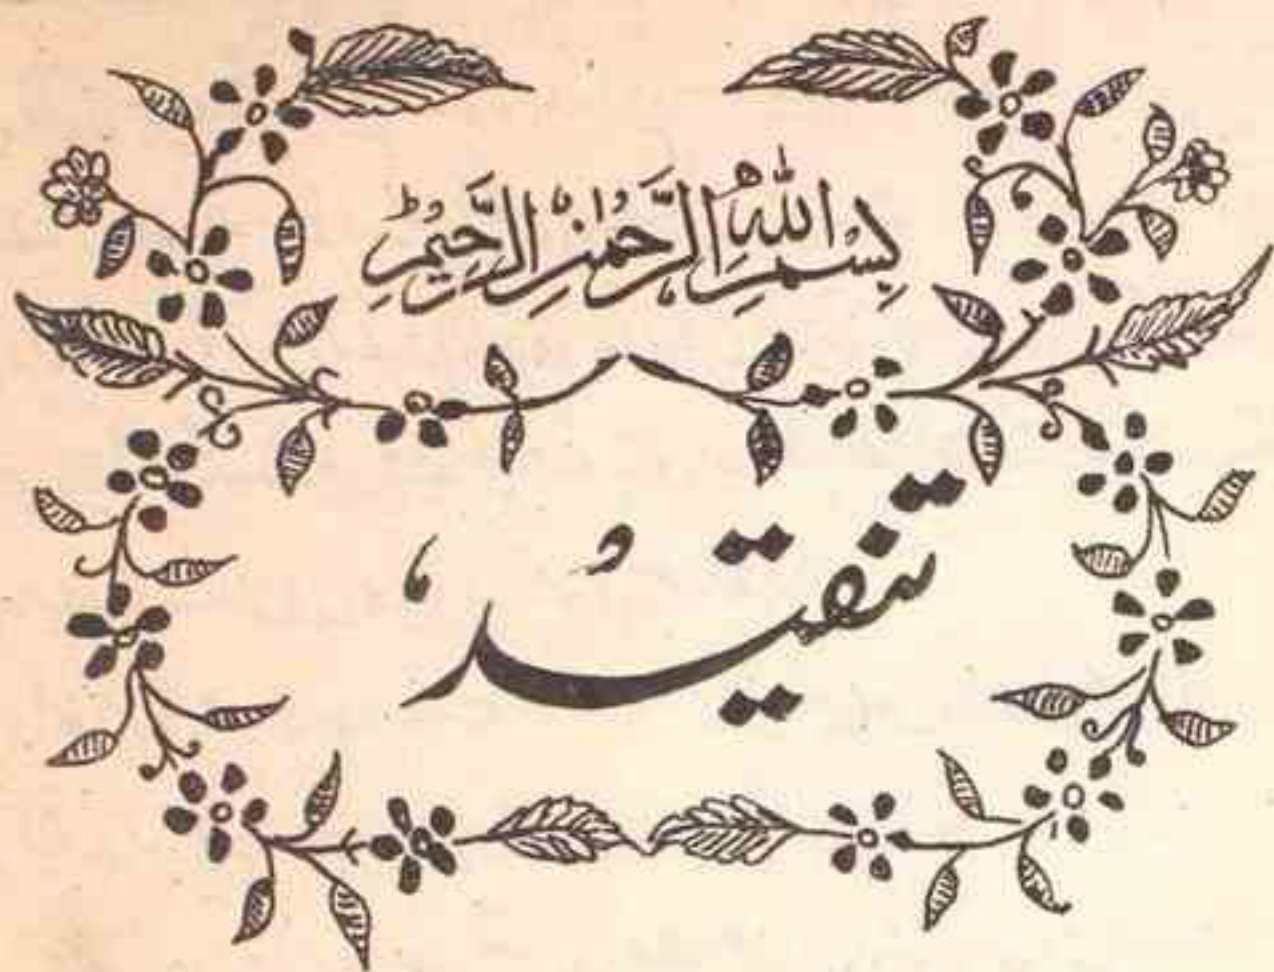 بِسْمِ اللهِ الرَّحْمٰنِ الرَّحِیْمِ ؕ
تنقیدُ